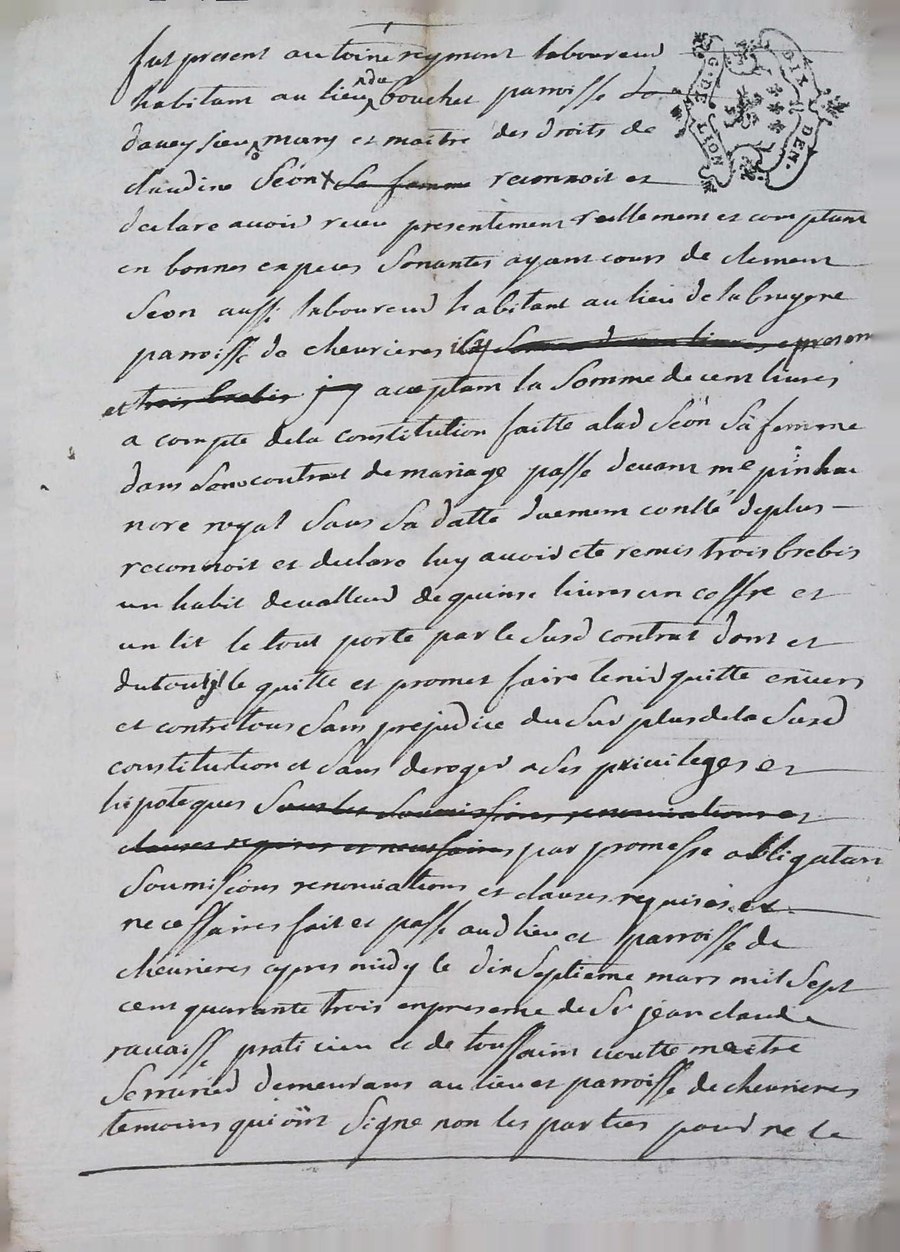 fut present antoine reymont laboureur
habitant au lieu du bouchet parroisse de
daveysieu mary et maitre des droits de
claudine Séon sa femme reconnoit et
declare avoir receu presentement reellement et comptant
en bonnes especes Sonantes ayant cours de clement
Seon aussi laboureur habitant au lieu de la bruyere
parroisse de chevrieres icy present
et trois brebis acceptant la Somme de cent livres
a compte de la constitution faitte a lad Séon Sa femme
dans Son contrat de mariage passe devant me pinhac
nore royal Sous Sa datte duement conllé deplus
reconnoit et declare luy avoir ete remis trois brebis
un habit de valleur de quinse livres un coffre et
un lit le tout porte par le Susd contrat dont et
du tout il le quitte et promet faire tenir quitte envers
et contre tous Sans prejudice du Sur plus de la Susd
constitution et Sans deroger a Ses privileges et
hipoteques Sous les Soumissions renonciations et
clauses requises et necessaires par promesse obligation
Soumissions renonciations et clauses requises et
necessaires fait et passe aud lieu et parroisse de
chevrieres apres midy le dix Septieme mars mil Sept
cent quarante trois en presence de Sr jean claude
ravaisse praticien et de toussaint maitre
Serrurier demeurans au lieu et parroisse de chevrieres
temoins qui ont Signe non les parties pour ne le
G. DE NOIT
DIX DEN.